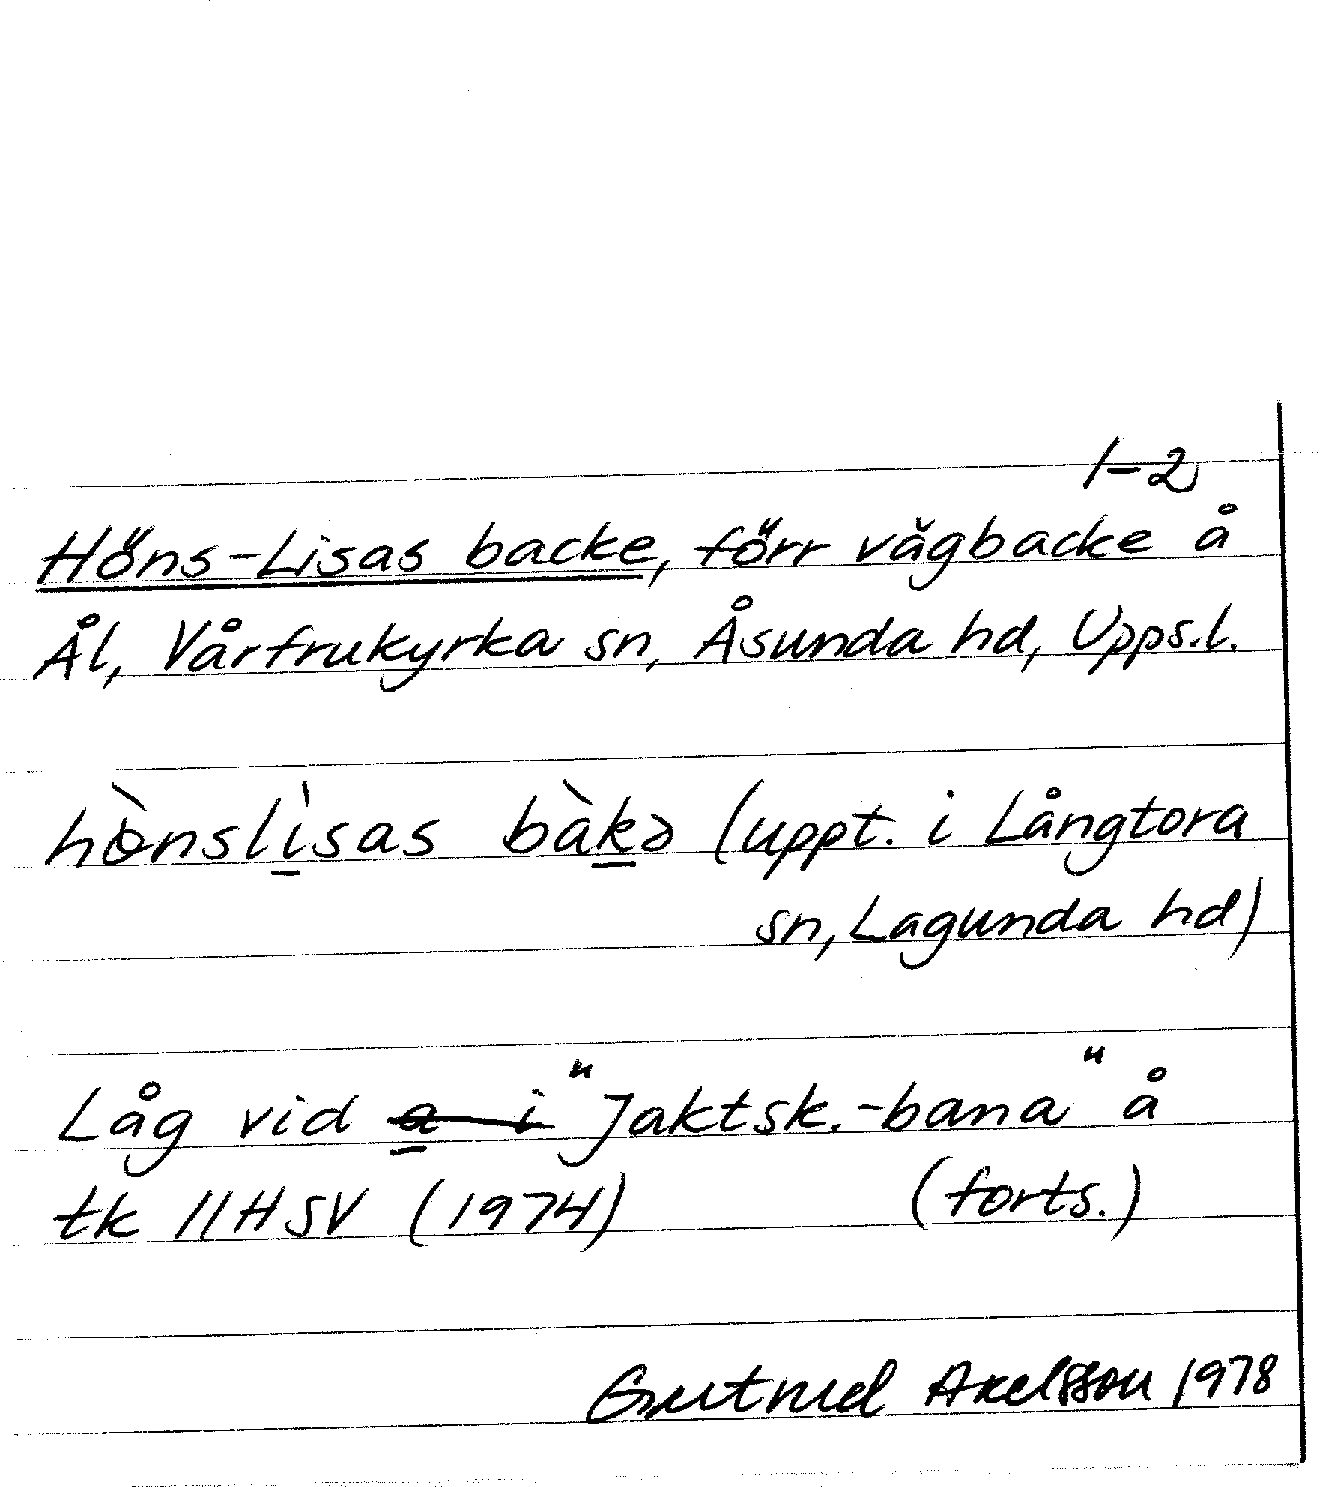 1-2
Höns-Lisas backe, förr vägbacke å
Ål, Vårfrukyrka sn, Åsunda hd, Upps.l.
hö̀nslìsas bàkə (uppt. i Långtora
sn, Lagunda hd)
Låg vid a i "Jaktsk.-bana" å
tk 11H SV (1974) (forts.)
Gertrud Axelsson 1978